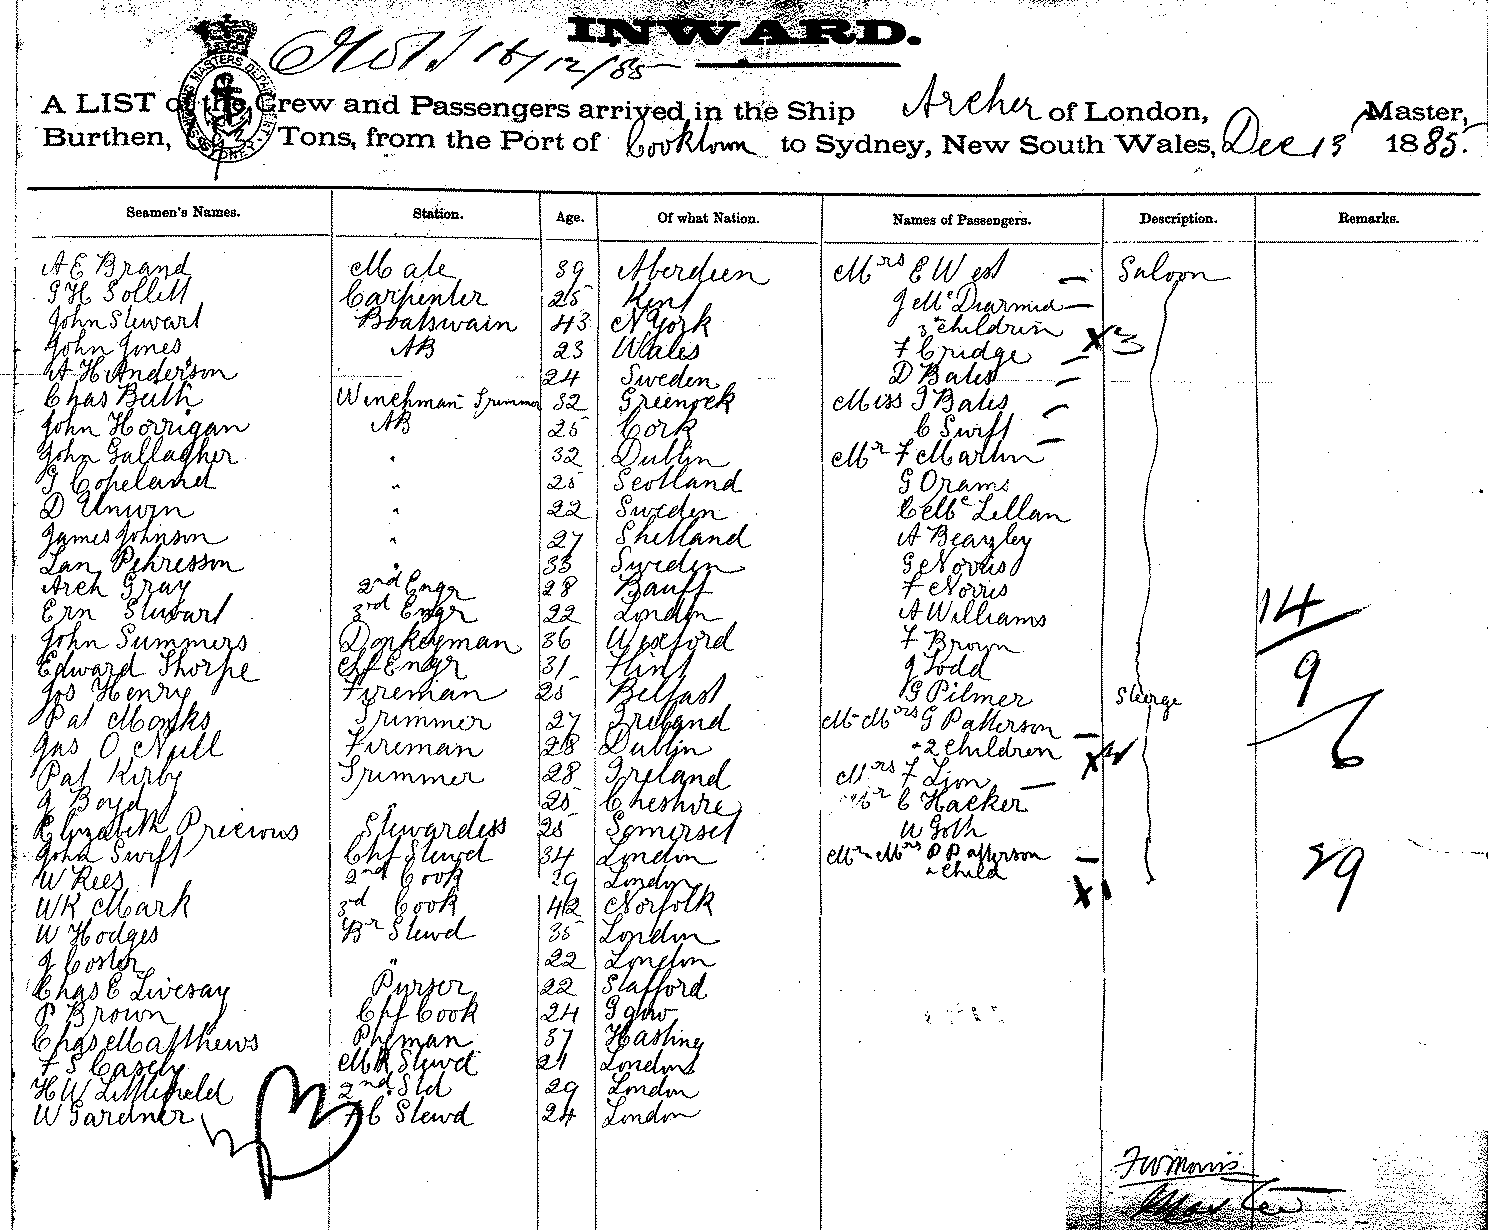 INWARD.
16/12/85
A LIST of the Crew and Passengers arrived in the Ship Archer of London, Master,
Burthen, Tons, from the Port of Cooktown to Sydney, New South Wales, Dec 13 1885.
Seamen's Names. Station. Age. Of what Nation. Names of Passengers. Description. Remarks.
A E Brand Mate 39 Aberdeen Mrs E West Saloon
G H Sollitt Carpenter 25 Kent J McDiarmid
John Stewart Boatswain 43 N York 3 children X3
John Jones AB 23 Wales F Cridge
A H Anderson 24 Sweden D Bates
Chas Beith Winchman Trimmer 32 Greenock Miss J Bates
John Horrigan AB 25 Cork C Swift
John Gallagher " 32 Dublin Mr F Martin
G Copeland " 25 Scotland G Orams
D Unwin " 22 Sweden C McLellan
James Johnson " 27 Shetland A Beazley
Lan Pehresson " 33 Sweden G Norris
Arch Gray 2nd Engr 28 Banff F Norris
Ern Stewart 3rd Engr 22 London A Williams 14
John Summers Donkeyman 36 Wexford F Brown
Edward Thorpe Chf Engr 31 Flint J Todd 9
Jos Henry Fireman 25 Belfast G Pilmer Sterge
Pat Monks Trimmer 27 Ireland Mr Mrs G Patterson 6
Jas O Neill Fireman 28 Dublin + 2 children X
Pat Kirby Trimmer 28 Ireland Mrs F Lion
J Boyd " 25 Cheshire Mr C Hacker
Elizabeth Precious Stewardess 25 Somerset W Goth
John Swift Chf Stewd 34 London Mr Mrs P Patterson 29
W Rees 2nd Cook 29 London + child X1
WR Mark 3rd Cook 42 Norfolk
W Hodges Br Stewd 35 London
J Coster " 22 London
Chas E Livesay Purser 22 Stafford
P Brown Chf Cook 24 Ggow
Chas Matthews Pheman 37 Hasting
F S Casely Stewd 21 London
H W Littlefield 2nd Std 29 London
W Gardner F C Stewd 24 London
33
F W Morris
Master